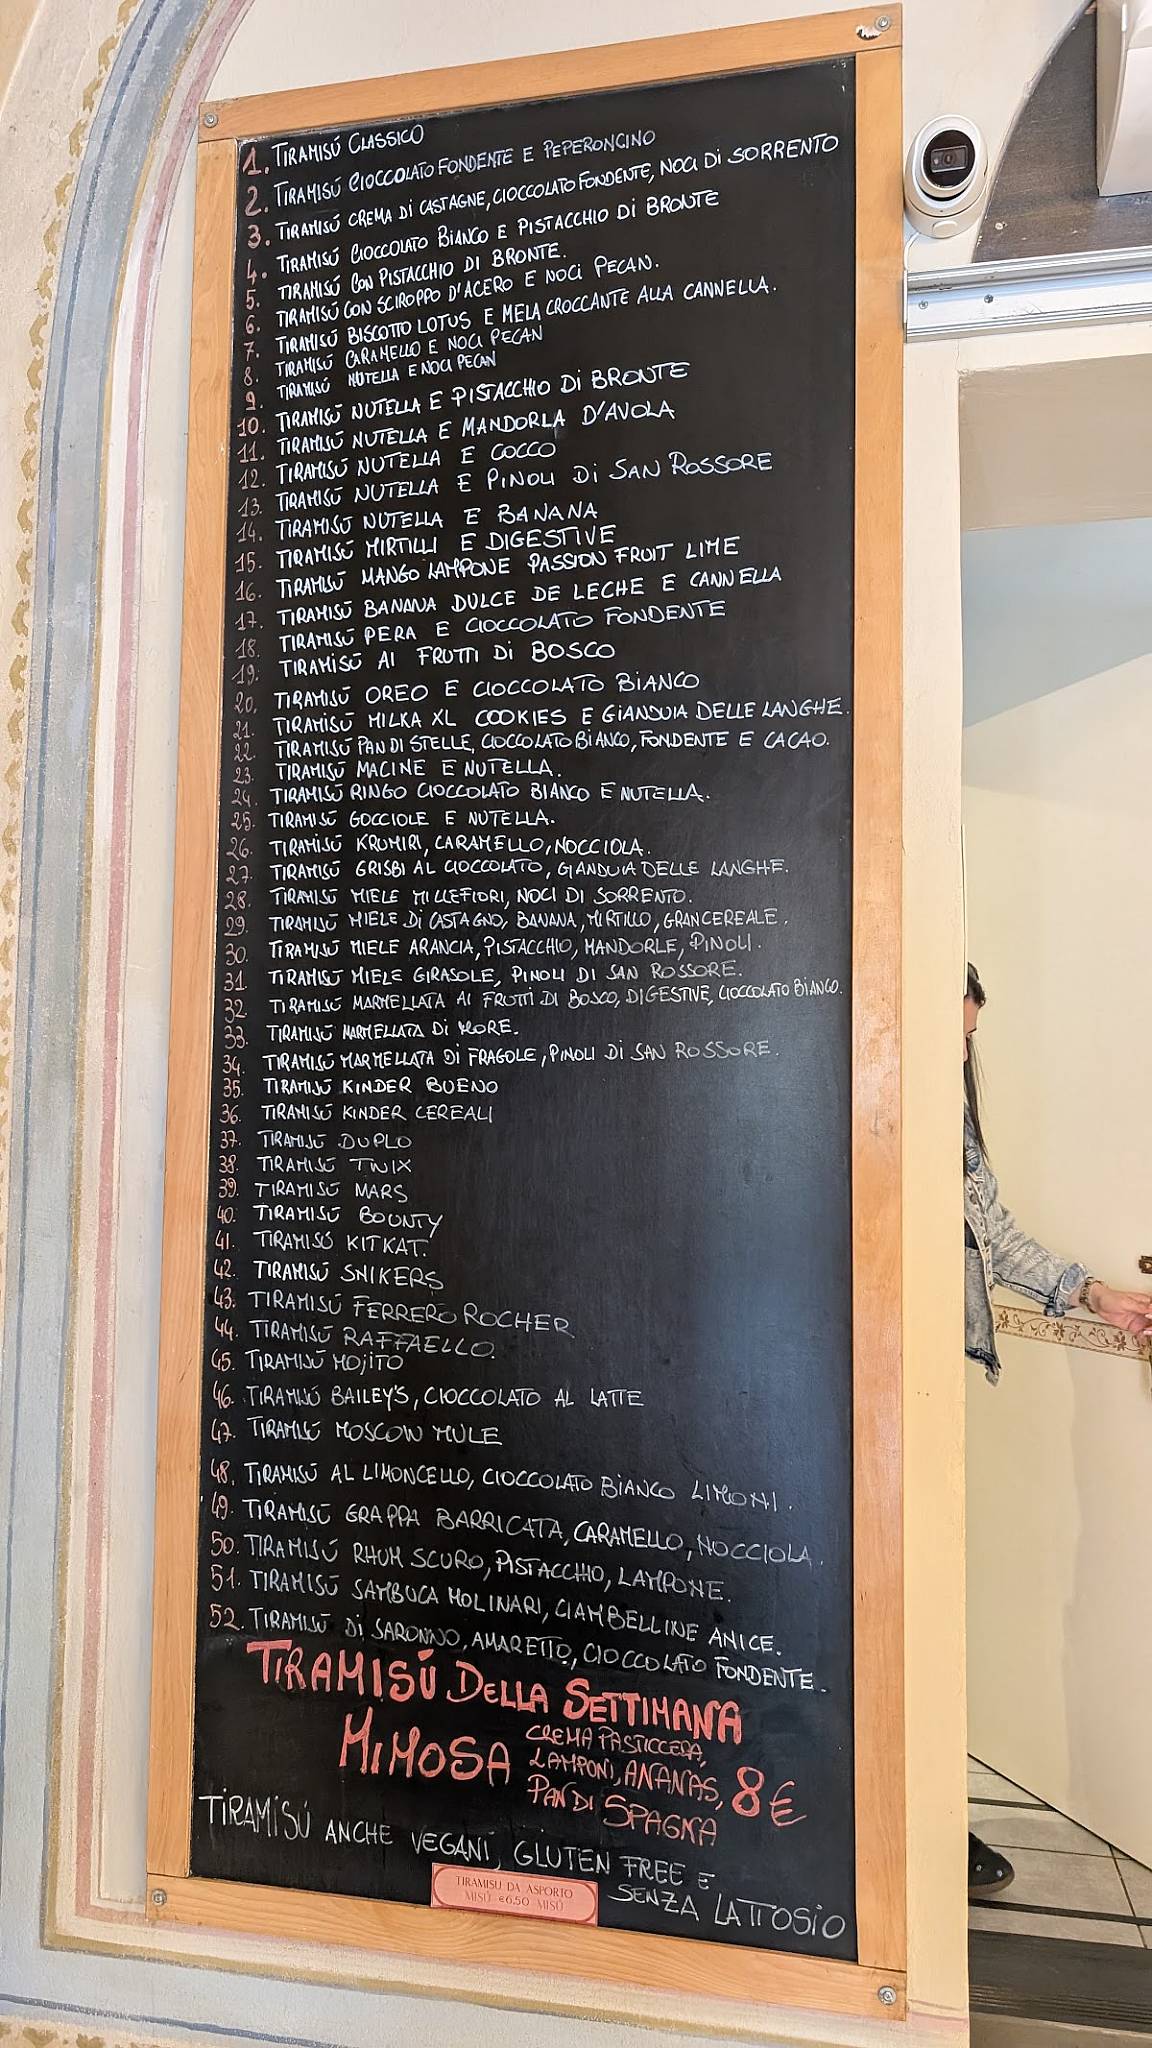 1. TIRAMISÚ CLASSICO
2. TIRAMISÚ CIOCCOLATO FONDENTE E PEPERONCINO
3. TIRAMISÚ CREMA DI CASTAGNE, CIOCCOLATO FONDENTE, NOCI DI SORRENTO
4. TIRAMISÚ CIOCCOLATO BIANCO E PISTACCHIO DI BRONTE
5. TIRAMISÚ CON PISTACCHIO DI BRONTE.
6. TIRAMISÚ CON SCIROPPO D'ACERO E NOCI PECAN.
7. TIRAMISÚ BISCOTTO LOTUS E MELA CROCCANTE ALLA CANNELLA.
8. TIRAMISÚ CARAMELLO E NOCI PECAN
9. TIRAMISÚ NUTELLA E NOCI PECAN
10. TIRAMISÚ NUTELLA E PISTACCHIO DI BRONTE
11. TIRAMISÚ NUTELLA E MANDORLA D'AVOLA
12. TIRAMISÚ NUTELLA E COCCO
13. TIRAMISÚ NUTELLA E PINOLI DI SAN ROSSORE
14. TIRAMISÚ NUTELLA E BANANA
15. TIRAMISÚ MIRTILLI E DIGESTIVE
16. TIRAMISÚ MANGO LAMPONE PASSION FRUIT LIME
17. TIRAMISÚ BANANA DULCE DE LECHE E CANNELLA
18. TIRAMISÚ PERA E CIOCCOLATO FONDENTE
19. TIRAMISÚ AI FRUTTI DI BOSCO
20. TIRAMISÚ OREO E CIOCCOLATO BIANCO
21. TIRAMISÚ MILKA XL COOKIES E GIANDUIA DELLE LANGHE.
22. TIRAMISÚ PAN DI STELLE, CIOCCOLATO BIANCO, FONDENTE E CACAO.
23. TIRAMISÚ MACINE E NUTELLA.
24. TIRAMISÚ RINGO CIOCCOLATO BIANCO E NUTELLA.
25. TIRAMISÚ GOCCIOLE E NUTELLA.
26. TIRAMISÚ KRUMIRI, CARAMELLO, NOCCIOLA.
27. TIRAMISÚ GRISBI AL CIOCCOLATO, GIANDUIA DELLE LANGHE.
28. TIRAMISÚ MIELE MILLEFIORI, NOCI DI SORRENTO.
29. TIRAMISÚ MIELE DI CASTAGNO, BANANA, MIRTILLO, GRANCEREALE.
30. TIRAMISÚ MIELE ARANCIA, PISTACCHIO, MANDORLE, PINOLI.
31. TIRAMISÚ MIELE GIRASOLE, PINOLI DI SAN ROSSORE.
32. TIRAMISÚ MARMELLATA AI FRUTTI DI BOSCO, DIGESTIVE, CIOCCOLATO BIANCO.
33. TIRAMISÚ MARMELLATA DI MORE.
34. TIRAMISÚ MARMELLATA DI FRAGOLE, PINOLI DI SAN ROSSORE.
35. TIRAMISÚ KINDER BUENO
36. TIRAMISÚ KINDER CEREALI
37. TIRAMISÚ DUPLO
38. TIRAMISÚ TWIX
39. TIRAMISÚ MARS
40. TIRAMISÚ BOUNTY
41. TIRAMISÚ KITKAT.
42. TIRAMISÚ SNIKERS
43. TIRAMISÚ FERRERO ROCHER
44. TIRAMISÚ RAFFAELLO.
45. TIRAMISÚ MOJITO
46. TIRAMISÚ BAILEY'S, CIOCCOLATO AL LATTE
47. TIRAMISÚ MOSCOW MULE
48. TIRAMISÚ AL LIMONCELLO, CIOCCOLATO BIANCO LIMONI.
49. TIRAMISÚ GRAPPA BARRICATA, CARAMELLO, NOCCIOLA.
50. TIRAMISÚ RHUM SCURO, PISTACCHIO, LAMPONE.
51. TIRAMISÚ SAMBUCA MOLINARI, CIAMBELLINE ANICE.
52. TIRAMISÚ DI SARONNO, AMARETTO, CIOCCOLATO FONDENTE.
TIRAMISÚ DELLA SETTIMANA
MIMOSA CREMA PASTICCERA,
LAMPONI, ANANAS, 8€
PAN DI SPAGNA
TIRAMISÚ ANCHE VEGANI, GLUTEN FREE E
SENZA LATTOSIO
TIRAMISÚ DA ASPORTO
MISÚ €6,50 MISÚ